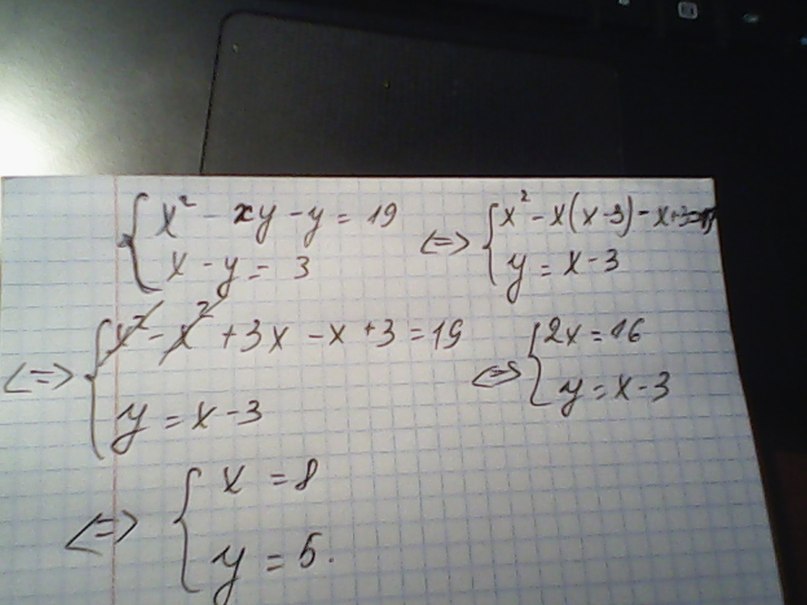 { x² - xy - y = 19
x - y = 3
<=> { x² - x(x-3) - x+3=19
y = x-3
<=> { x² - x² + 3x - x + 3 = 19
y = x - 3
<=> { 2x = 16
y = x - 3
<=> { x = 8
y = 5.